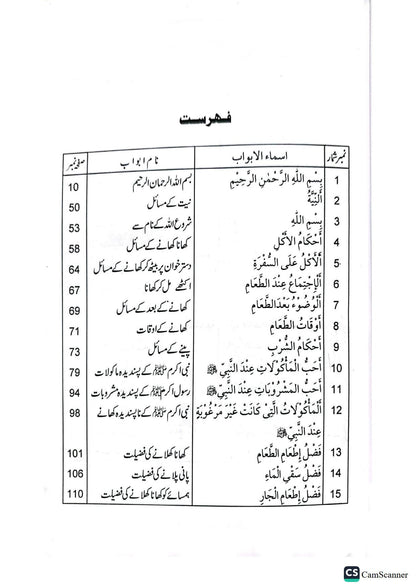 فہرست
نمبر شمار اسماء الابواب نام ابواب صفحہ نمبر
1 بِسْمِ اللّٰهِ الرَّحْمٰنِ الرَّحِيْمِ بسم اللہ الرحمان الرحیم 10
2 اَلنِّيَّةُ نیت کے مسائل 50
3 بِسْمِ اللّٰهِ شروع اللہ کے نام سے 53
4 أَحْكَامُ الْأَكْلِ کھانا کھانے کے مسائل 58
5 اَلْأَكْلُ عَلَى السُّفْرَةِ دستر خوان پر بیٹھ کر کھانے کے مسائل 64
6 اَلْإِجْتِمَاعُ عِنْدَ الطَّعَامِ اکٹھے مل کر کھانا 67
7 اَلْوُضُوْءُ بَعْدَ الطَّعَامِ کھانے کے بعد کے مسائل 69
8 أَوْقَاتُ الطَّعَامِ کھانے کے اوقات 71
9 أَحْكَامُ الشُّرْبِ پینے کے مسائل 73
10 أَحَبُّ الْمَأْكُوْلَاتِ عِنْدَ النَّبِيِّ ﷺ نبی اکرم ﷺ کے پسندیدہ ماکولات 79
11 أَحَبُّ الْمَشْرُوْبَاتِ عِنْدَ النَّبِيِّ ﷺ رسول اکرم ﷺ کے پسندیدہ مشروبات 94
12 اَلْمَأْكُوْلَاتُ الَّتِىْ كَانَتْ غَيْرَ مَرْغُوْبَةٍ نبی اکرم ﷺ کے ناپسندیدہ کھانے 98
عِنْدَ النَّبِيِّ ﷺ
13 فَضْلُ إِطْعَامِ الطَّعَامِ کھانا کھلانے کی فضیلت 101
14 فَضْلُ سَقْيِ الْمَاءِ پانی پلانے کی فضیلت 106
15 فَضْلُ إِطْعَامِ الْجَارِ ہمسائے کو کھانا کھلانے کی فضیلت 110
CS CamScanner